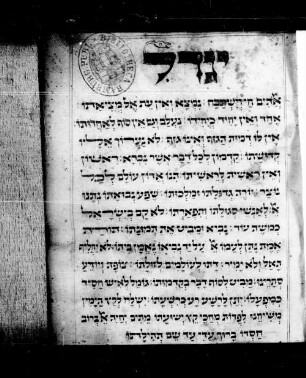 יגדל
אלהים חי וישתבח: נמצא ואין עת אל מציאותו
אחד ואין יחיד כיחודו: נעלם וגם אין סוף לאחדותו
אין לו דמות הגוף ואינו גוף: לא נערוך אליו
קדושתו: קדמון לכל דבר אשר נברא: ראשון
ואין ראשית לראשיתו: הנו אדון עולם לכל
נוצר יורה גדולתו ומלכותו: שפע נבואתו נתנו
אל אנשי סגולתו ותפארתו: לא קם בישראל
כמשה עוד: נביא ומביט את תמונתו: תורת
אמת נתן לעמו אל על יד נביאו נאמן ביתו: לא יחליף
האל ולא ימיר: דתו לעולמים לזולתו: צופה ויודע
סתרינו: מביט לסוף דבר בקדמותו: גומל לאיש חסיד
כמפעלו: נותן לרשע רע כרשעתו: ישלח לקץ הימין
משיחנו לפדות מחכי קץ ישועתו: מתים יחיה אל ברוב
חסדו ברוך עדי עד שם תהילתו